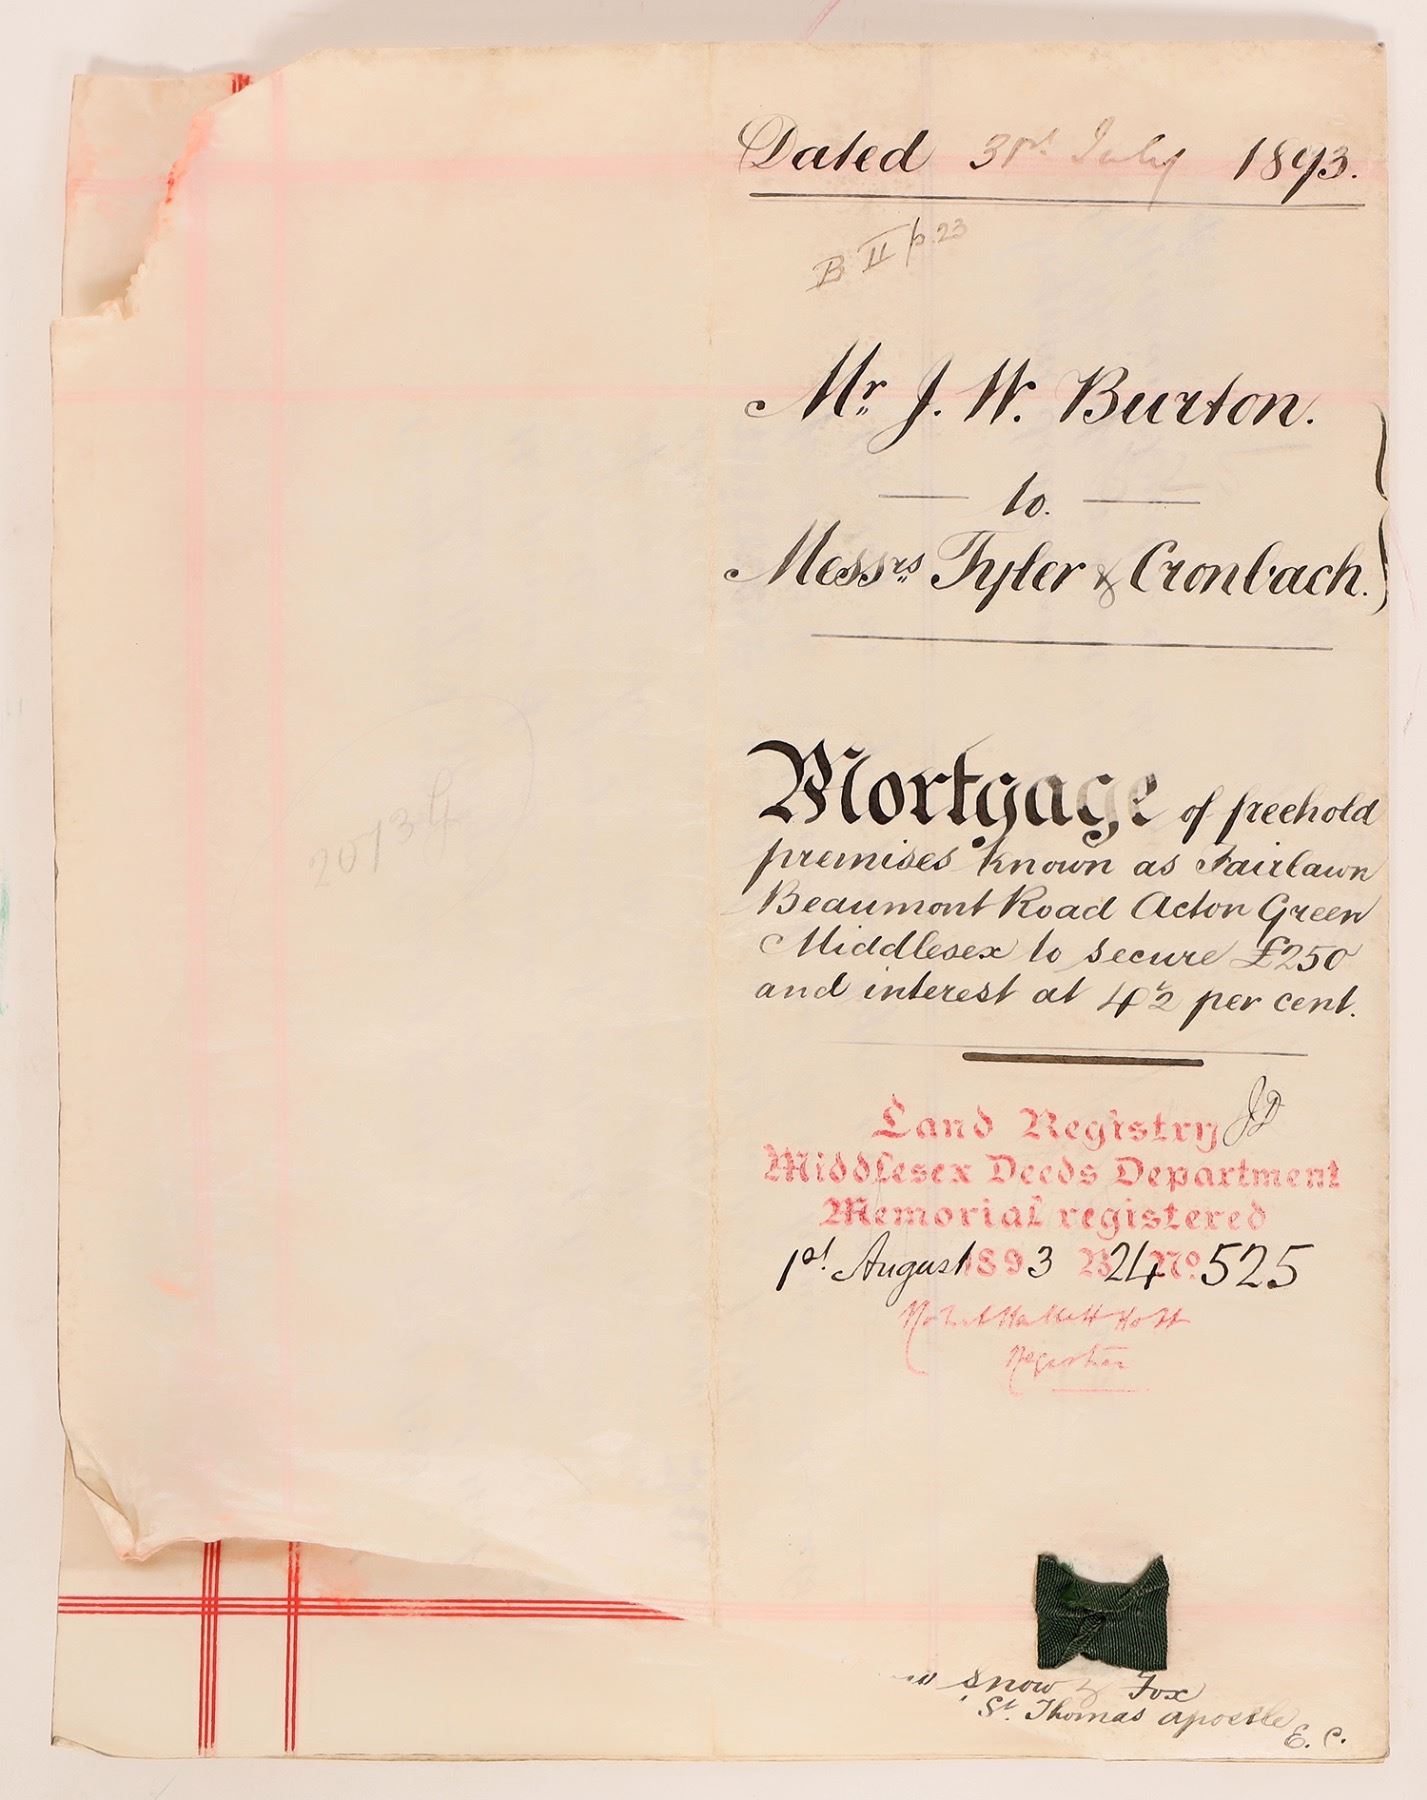 Dated 31st July 1893.
B II p. 23
Mr J. W. Burton.
to.
Messrs Tyler & Cronbach.
Mortgage of freehold
premises known as Fairlawn
Beaumont Road Acton Green
Middlesex to secure £250
and interest at 4½ per cent.
JD
Land Registry
Middlesex Deeds Department
Memorial registered
1st August 1893 B 24 No. 525
Registrar
Snow & Fox
St. Thomas apostle
E. C.